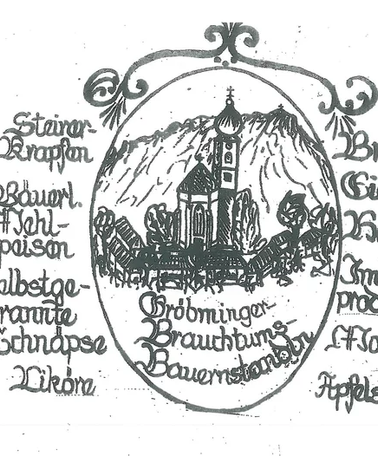 Steirer-
Krapfen
Bäuerl.
Mehl-
speisen
elbstge-
rannte
Schnäpse
Liköre
Gröbminger
Brauchtums-
Bauernstandln
Br
Im
prod
Apfels